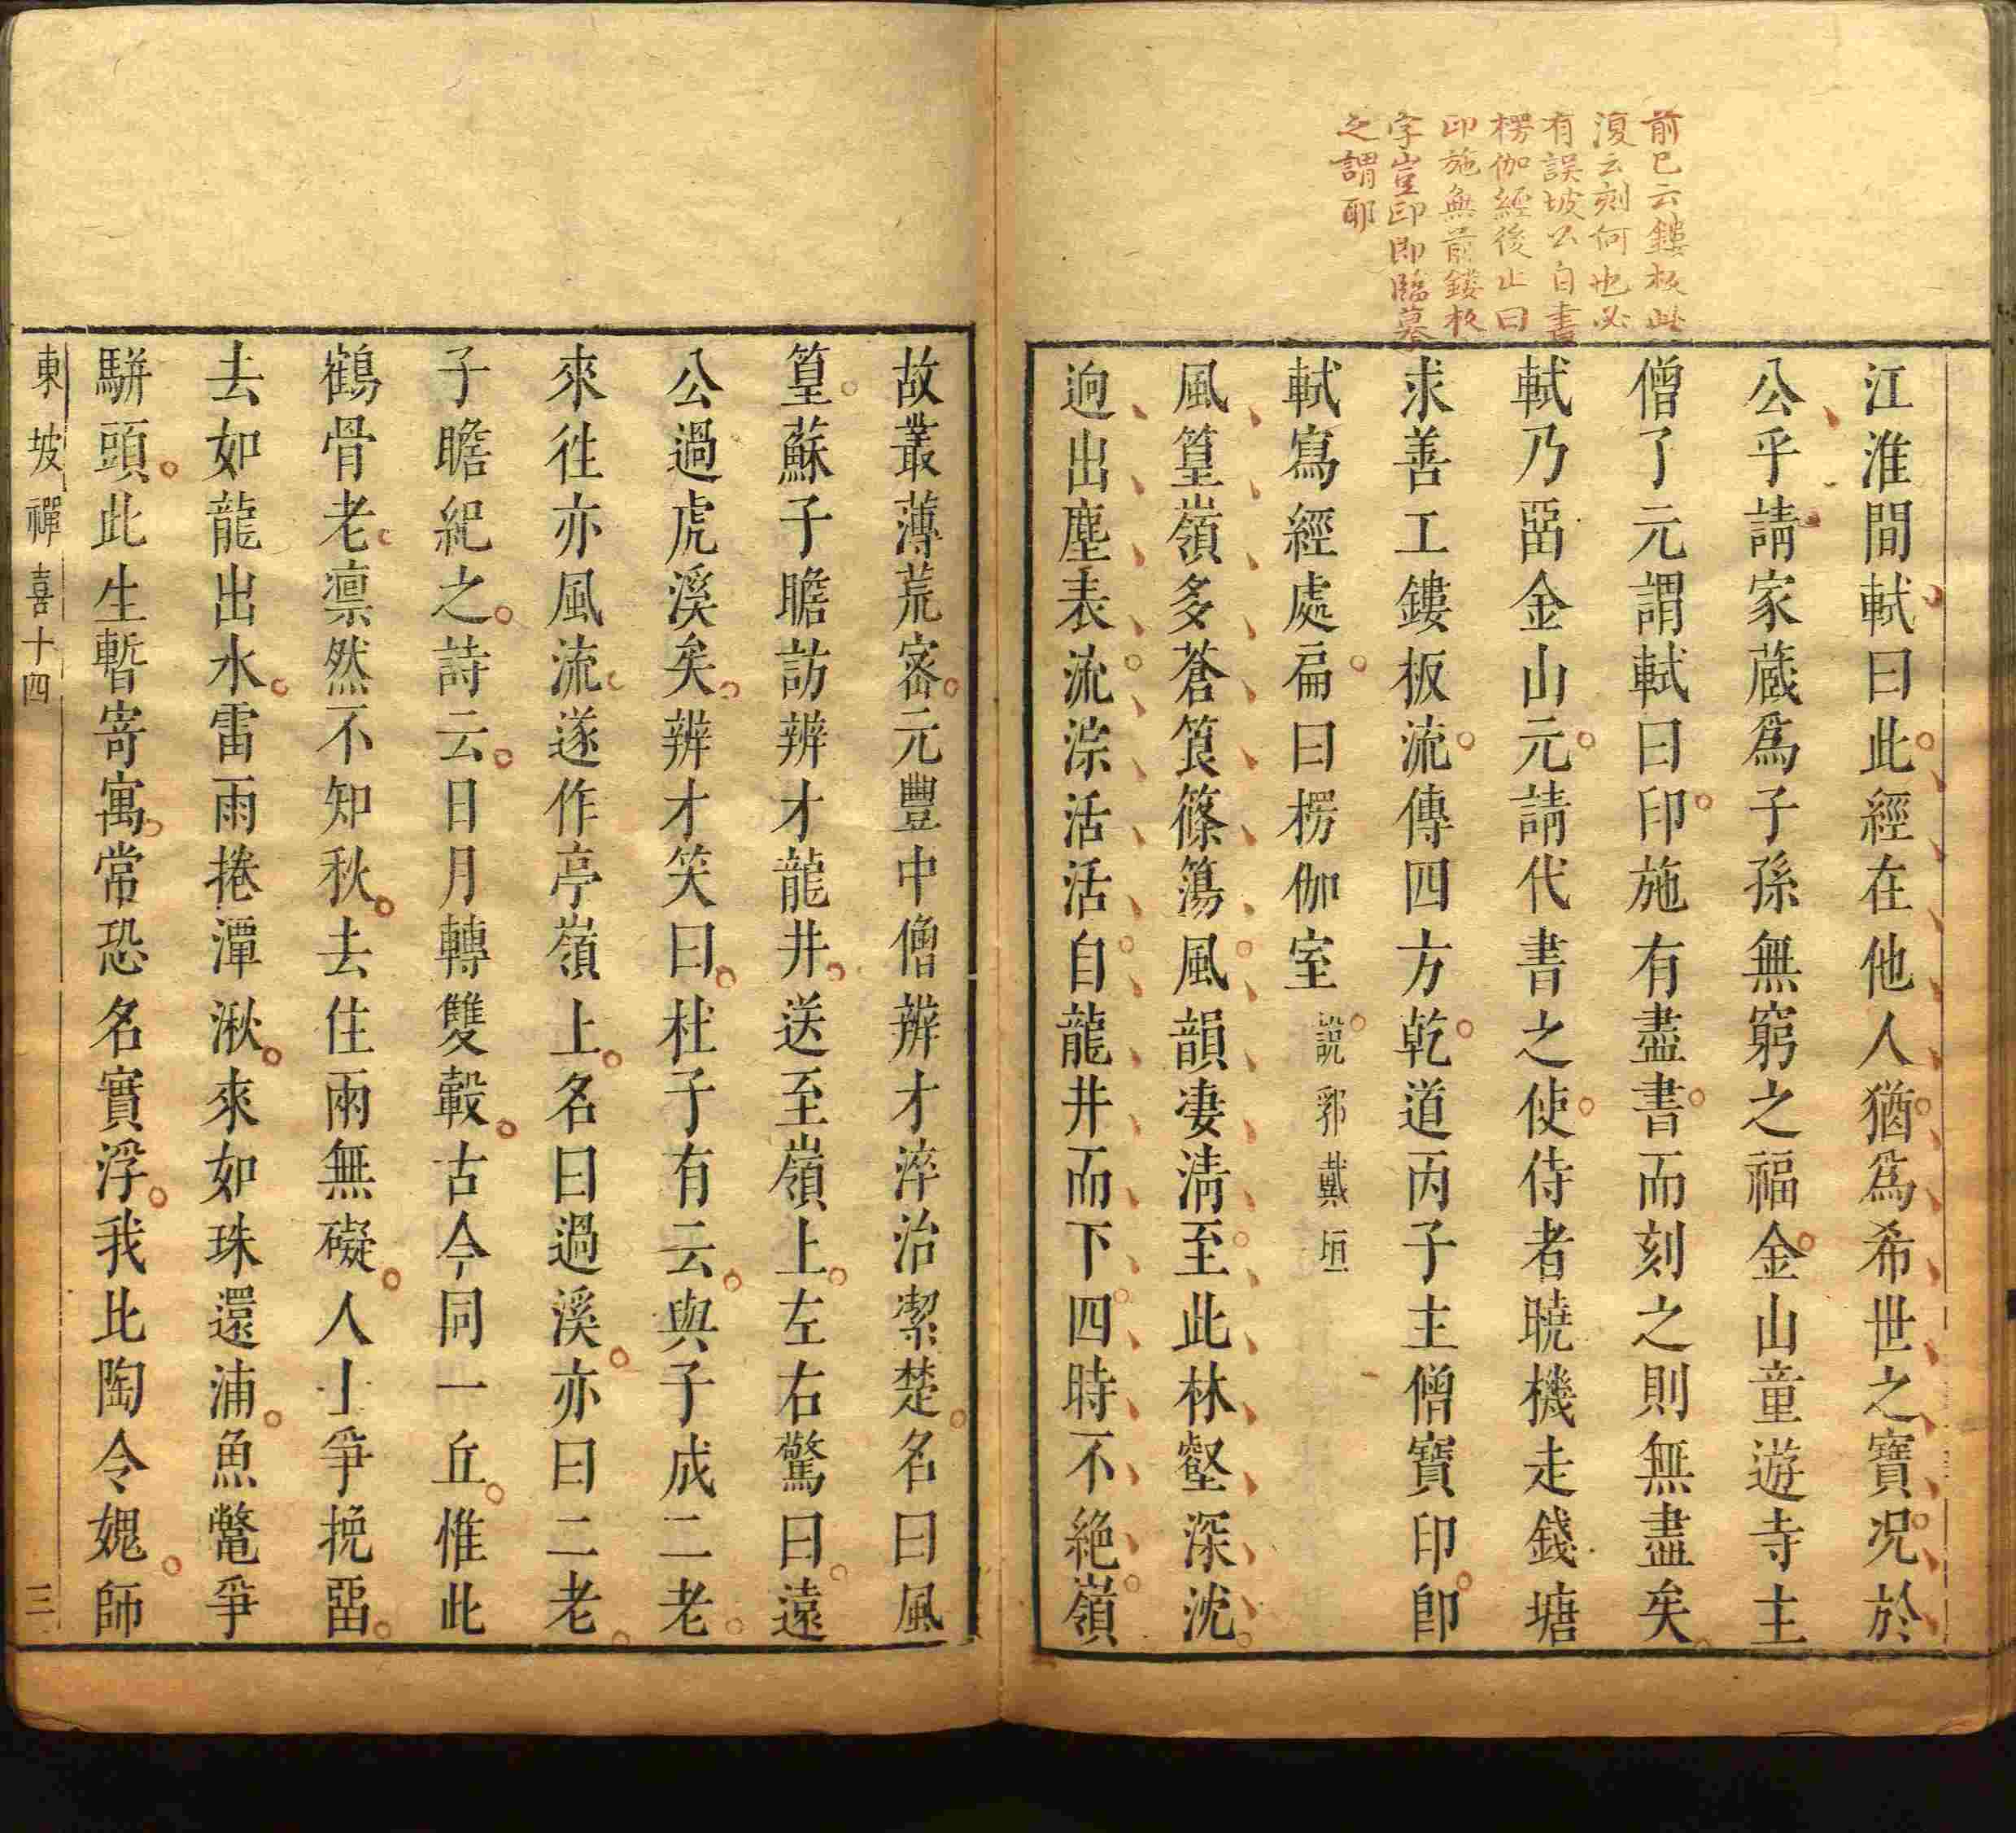 前已云鏤板此
復云刻何也必
有誤坡公自書
楞伽經後止曰
印施無前鏤板
字豈印即臨摹
之謂耶
江淮間軾曰此經在他人猶爲希世之寶况於
公乎請家藏爲子孫無窮之福金山童遊寺主
僧了元謂軾曰印施有盡書而刻之則無盡矣
軾乃畱金山元請代書之使侍者曉機走錢塘
求善工鏤板流傳四方乾道丙子主僧寶印卽
軾寫經處扁曰楞伽室 說郛戴垣
風篁嶺多蒼筤篠簜風韻凄清至此林壑深沈
逈出塵表流淙活活自龍井而下四時不絶嶺
故叢薄荒密元豐中僧辨才淬治潔楚名曰風
篁蘇子瞻訪辨才龍井送至嶺上左右驚曰遠
公過虎溪矣辨才笑曰杜子有云與子成二老
來徃亦風流遂作亭嶺上名曰過溪亦曰二老
子瞻紀之詩云日月轉雙轂古今同一丘惟此
鶴骨老凛然不知秋去住兩無礙人士爭挽畱
去如龍出水雷雨捲潭湫來如珠還浦魚鼈爭
駢頭此生暫寄寓常恐名實浮我比陶令媿師
東坡禪喜十四 三